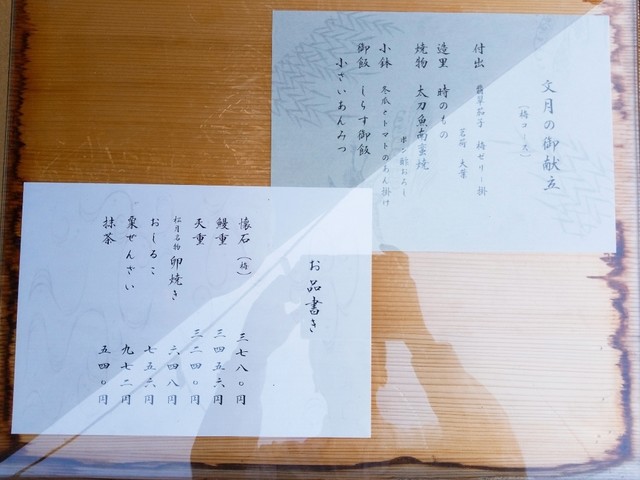 文月の御献立
（梅コース）
付出 翡翠茄子 梅ゼリー掛
茗荷 大葉
造里 時のもの
焼物 太刀魚南蛮焼
ポン酢おろし
小鉢 冬瓜とトマトのあん掛け
御飯 しらす御飯
小さいあんみつ
お品書き
懐石（梅） 三七八〇円
鰻重 三四五六円
天重 三二四〇円
松月名物 卵焼き 六四八円
おしるこ 七五六円
栗ぜんざい 九七二円
抹茶 五四〇円